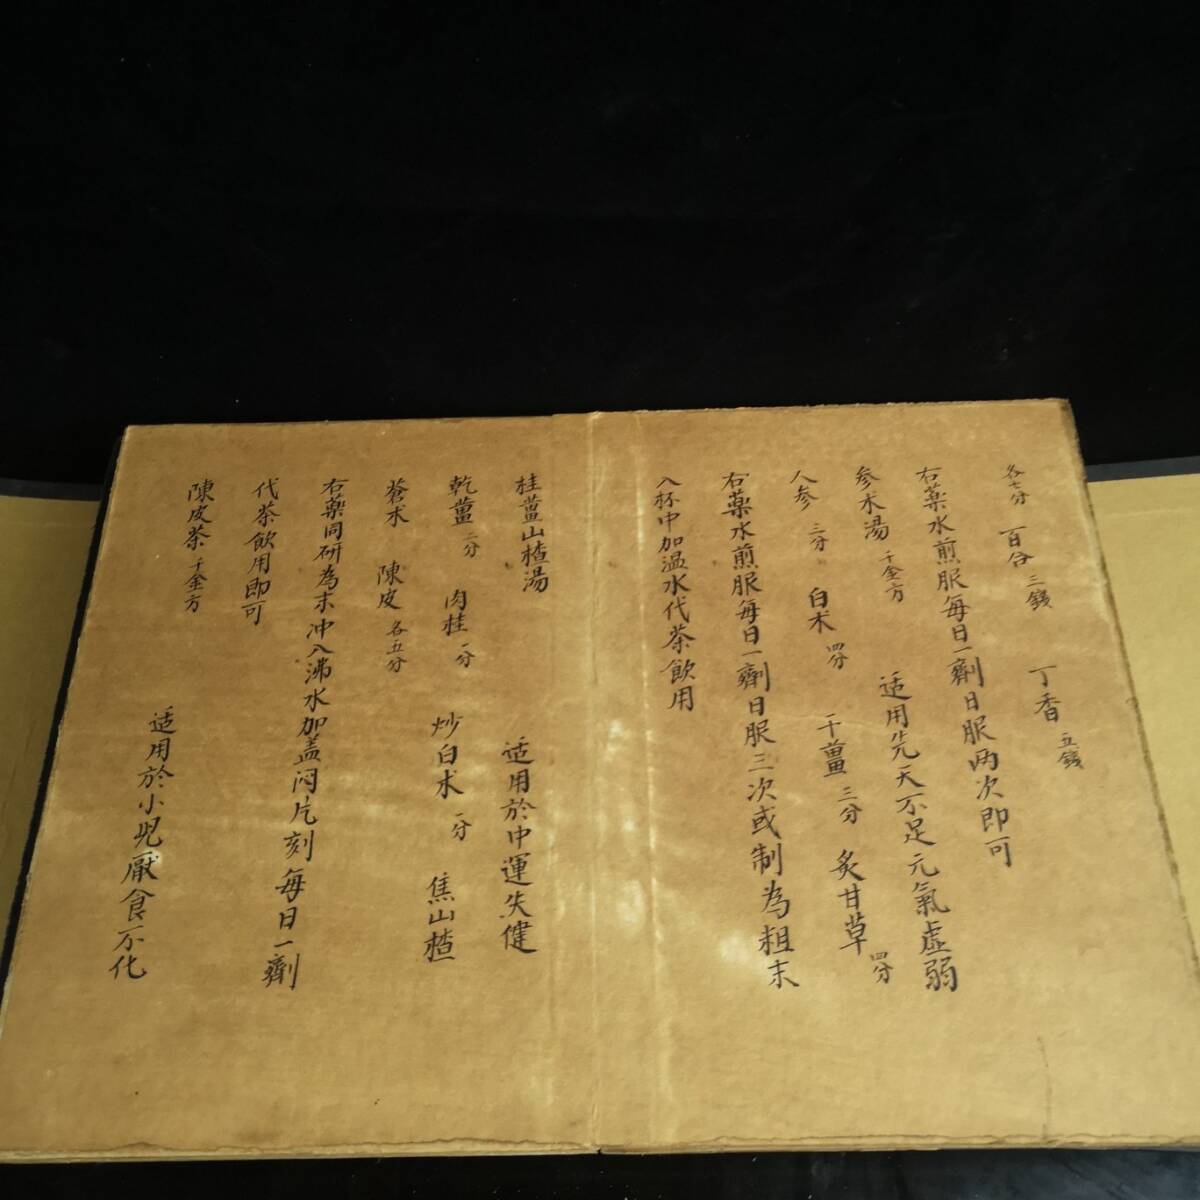 各七分 百合 三錢 丁香 五錢
右薬水煎服每日一劑日服两次即可
参术湯 千金方 适用先天不足元氣虛弱
人参 三分 白术 四分 干薑 三分 炙甘草 四分
右薬水煎服每日一劑日服三次或制為粗末
入杯中加温水代茶飲用
桂薑山楂湯 适用於中運失健
乾薑 二分 肉桂 一分 炒白术 一分 焦山楂
蒼术 陳皮 各五分
右薬同研為末冲入沸水加盖闷片刻每日一劑
代茶飲用即可
陳皮茶 千金方 适用於小児厭食不化